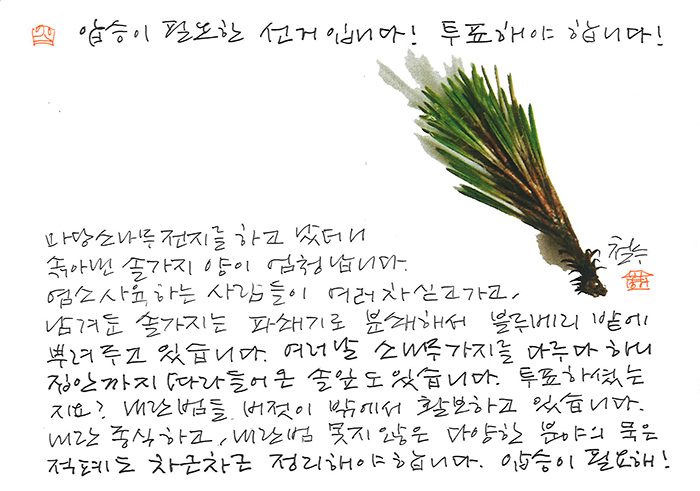 압승이 필요한 선거입니다! 투표해야 합니다!
마당소나무 전지를 하고 났더니
솎아낸 솔가지 양이 엄청납니다.
염소사육하는 사람들이 여러차 싣고가고,
남겨둔 솔가지는 파쇄기로 분쇄해서 블루베리 밭에
뿌려두고 있습니다. 여러날 소나무가지를 다루다 하니
집안까지 따라들어온 솔잎도 있습니다. 투표하셨는
지요? 내란범들 버젓이 밖에서 활보하고 있습니다.
내란 종식하고, 내란범 못지 않은 다양한 분야의 묵은
적폐도 차근차근 정리해야 합니다. 압승이 필요해!
철수